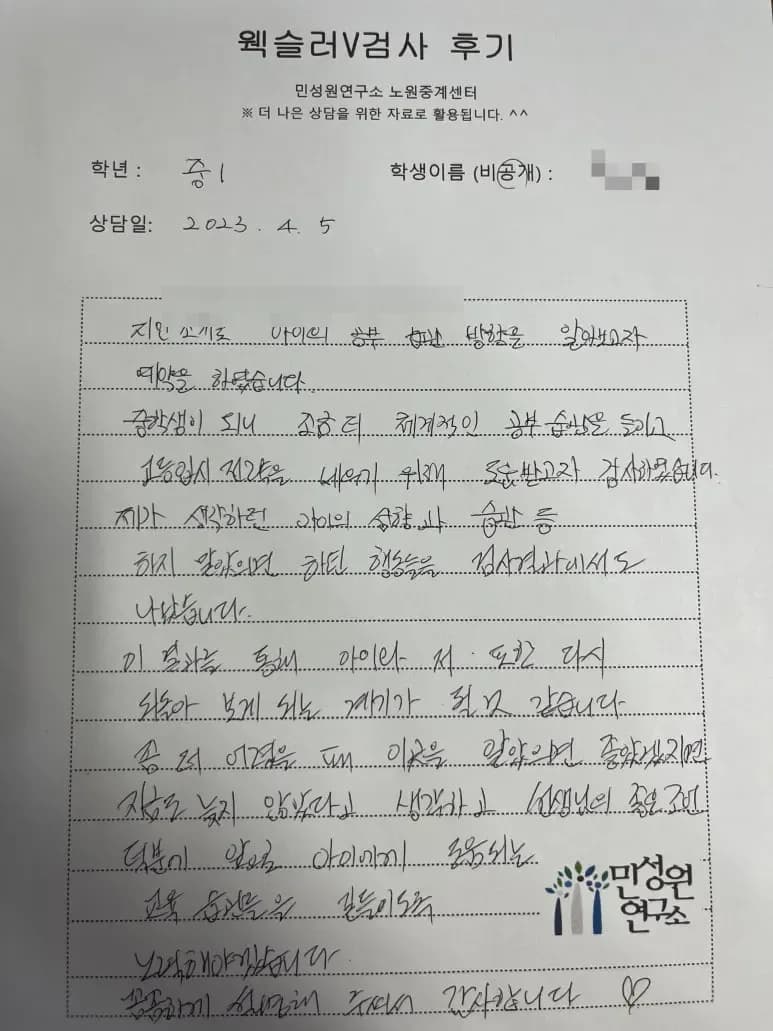 웩슬러V검사 후기
민성원연구소 노원중계센터
※ 더 나은 상담을 위한 자료로 활용됩니다. ^^
학년 : 중1
학생이름 (비공개) :
상담일: 2023. 4. 5
지인 소개로 아이의 공부 습관 방향을 알아보고자
예약을 하였습니다.
중학생이 되니 조금 더 체계적인 공부 습관을 들이고
고등입시 전략을 세우기 위해 도움받고자 검사하였습니다.
제가 생각하던 아이의 성향과 습관 등
하지 말았으면 하던 행동들을 검사결과에서도
나왔습니다.
이 결과를 통해 아이와 저 또한 다시
되돌아 보게 되는 계기가 된 것 같습니다
좀 더 어렸을 때 이곳을 알았으면 좋았겠지만,
지금도 늦지 않았다고 생각하고 선생님의 좋은 조언
덕분에 앞으로 아이에게 도움되는
교육 습관들을 길들이도록
노력해야겠습니다
꼼꼼하게 설명해 주셔서 감사합니다 ♡
민성원
연구소